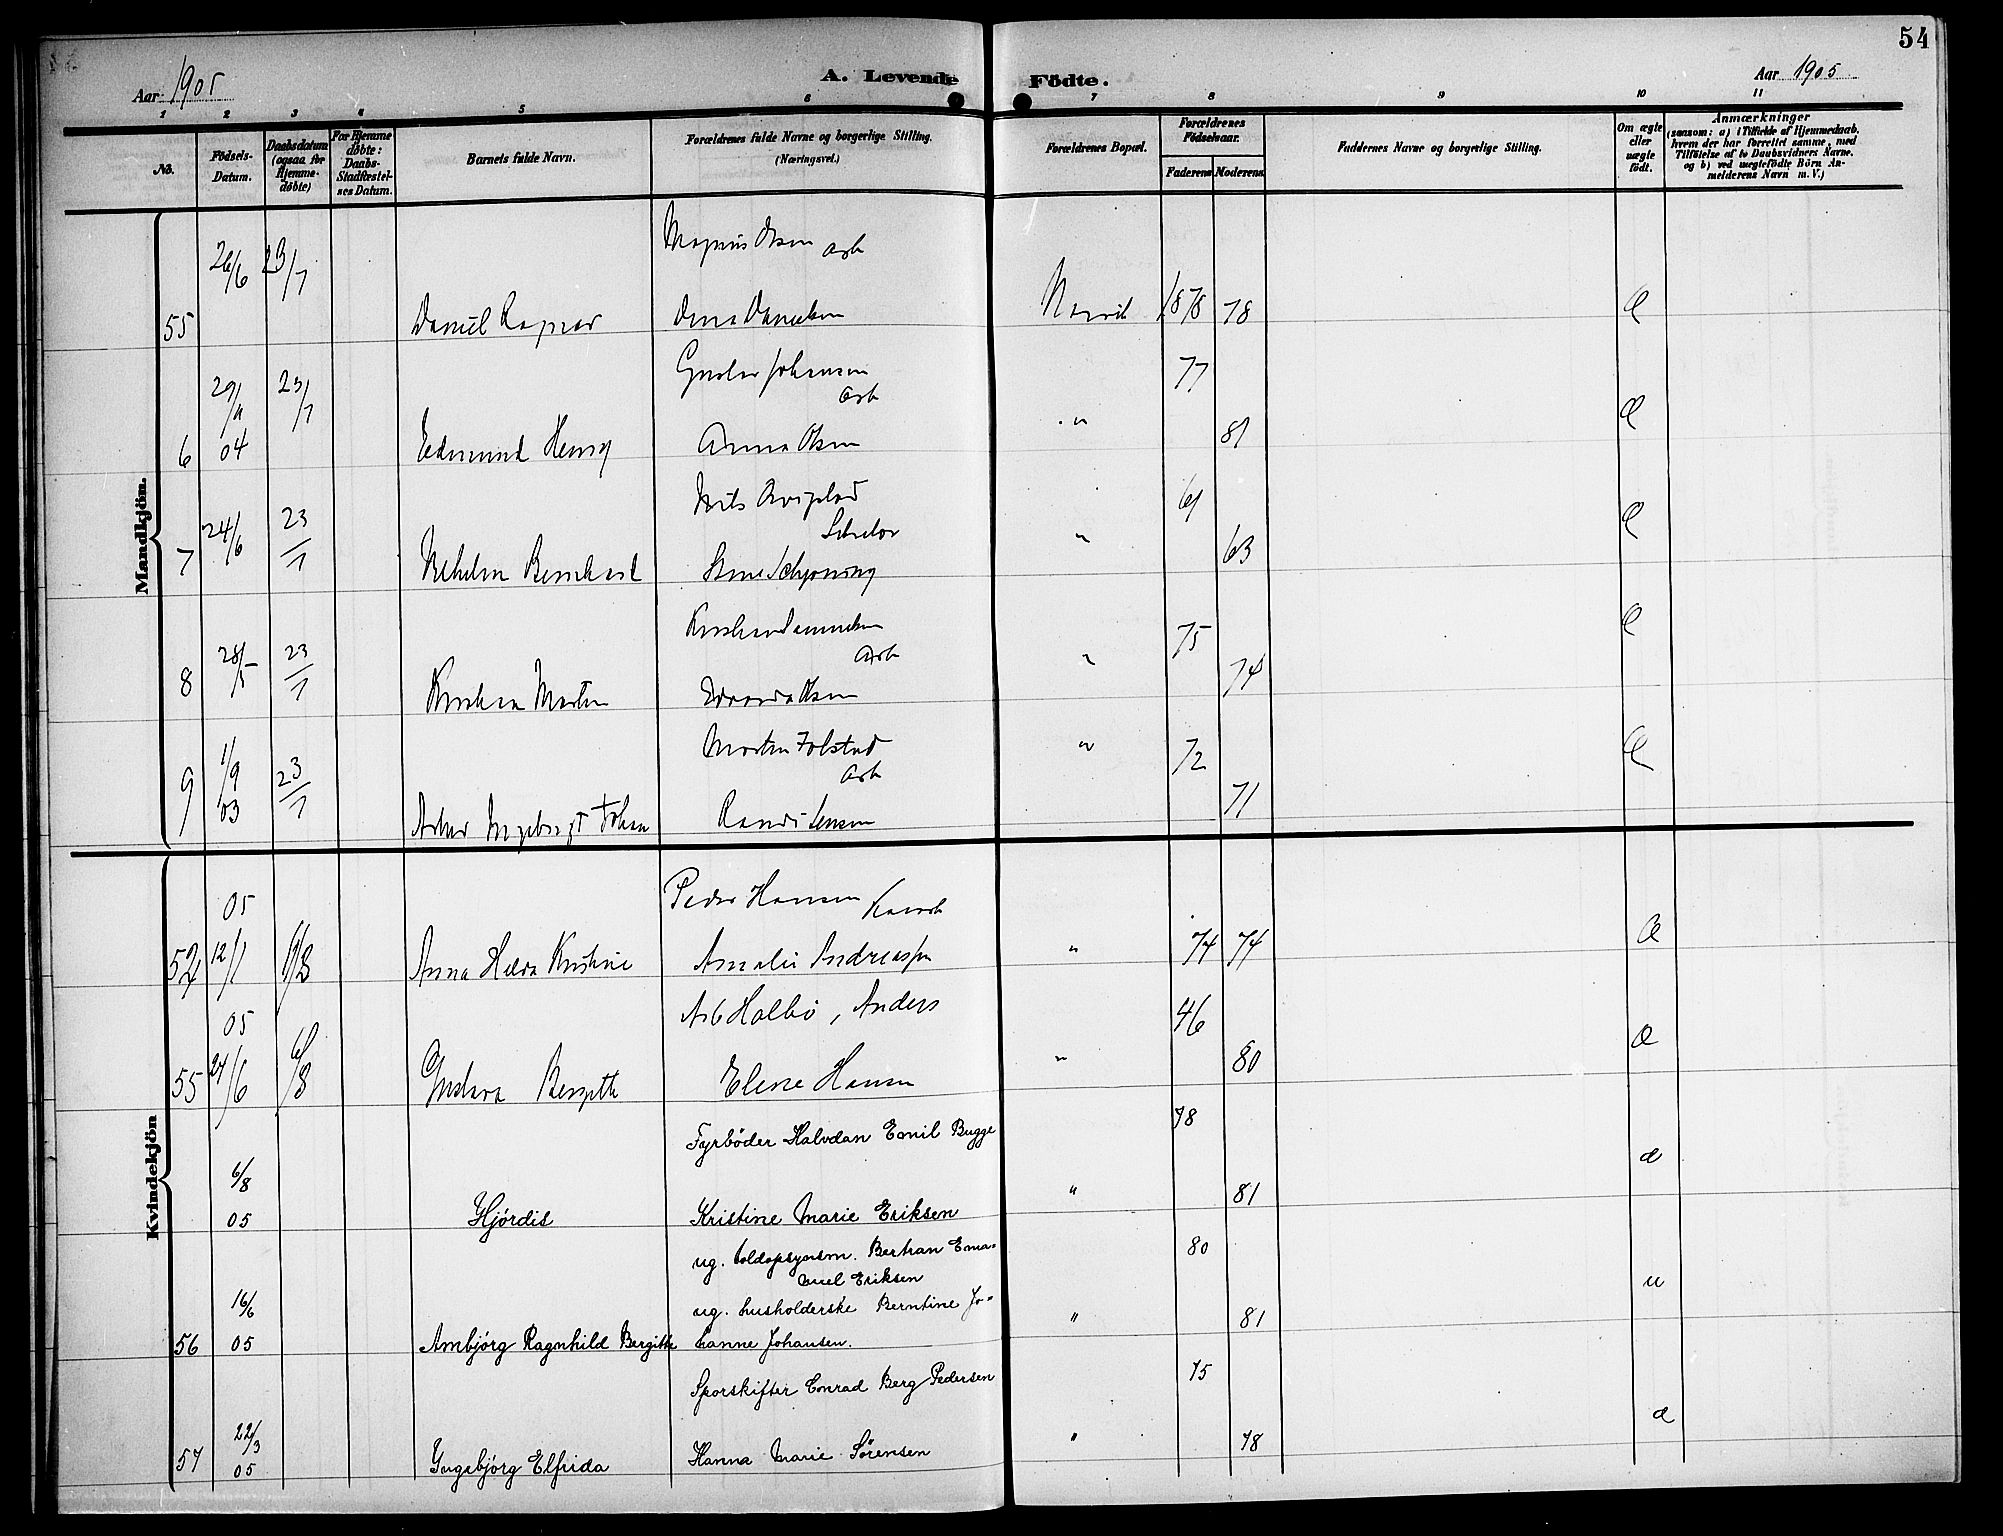 54
Aar 1905
A. Levende Födte.
Aar 1905
1 2 3 4 5 6 7 8 9 10 11
No.
Födsels-Datum.
Daabsdatum (ogsaa for Hjemme-døbte)
For Hjemme døbte: Daabs-Stadfæstel-ses Datum.
Barnets fulde Navn.
Forældrenes fulde Navne og borgerlige Stilling. (Næringsvei.)
Forældrenes Bopæl.
Forældrenes Födselsaar.
Faderens
Moderens
Faddernes Navne og borgerlige Stilling.
Om ægte eller uægte födt.
Anmærkninger
(saasom: a) i Tilfælde af Hjemmedaab, hvem der har forrettet samme, med Tilföielse af to Daabsvidners Navne, og b) ved uægtefödte Börn An-melderens Navn m. V.)
Mandkjön.
Magnus Olsen Arb
26/6 23/7
55 Daniel Ragnar Danielsen 1878 78 Æ
Gustav Johansen 77
29/11 23/7 Arb
6 04 Edmund Henry Anna Olsen " 81 Æ
Nils 61
7 24/6 23/7 Bernhard Schjøning " 63 Æ
Kristian 75
Arb
8 28/5 23/7 Kristian Martin Edvarda Olsen " 74 Æ
Morten Folstad " 72
Arb
9 1/9 03 23/7 Johan Randi Jensen 71 Æ
Kvindekjön
Peder Hansen
05
54 12/1 6/8 Anna Helva Kristine Amalie Andreassen " 74 74 Æ
Arb Holbø, Anders 46
05
55 24/6 6/8 Gustava Bergitte Elene Hansen " 80 Æ
Fyrbøder Halvdan Emil Bugge 78
6/8
05 Hjørdis Kristine Marie Eriksen " 81 æ
ug. toldopsynsm. Bertran Ema- 80
nuel Eriksen
16/6 ug. husholderske Berntine Jo- " 81 u
56 05 Arnbjörg Ragnhild Bergitte hanne Johansen.
Sporskifter Conrad Berg Pedersen 75
22/3 " 78 æ
57 05 Ingebjörg Elfrida Hanna Marie Sørensen